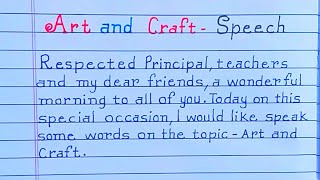 Art and Craft - Speech
Respected Principal, teachers
and my dear friends, a wonderful
morning to all of you. Today on this
special occasion, I would like speak
some words on the topic - Art and
Craft.